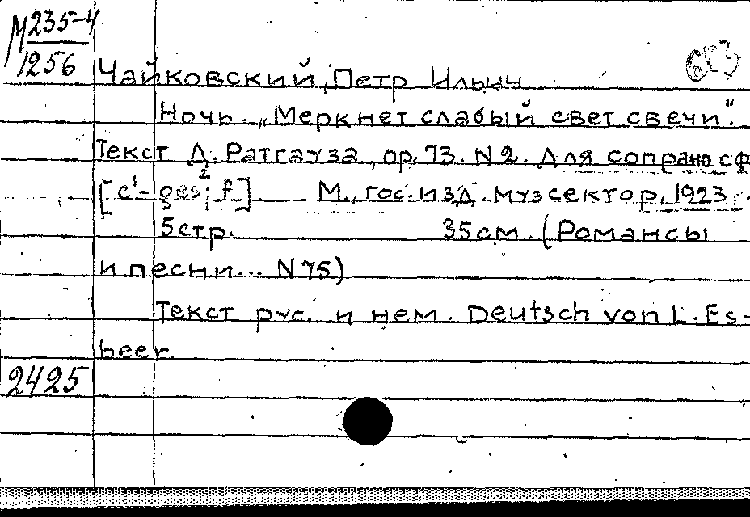 М 235-4
1256
Чайковский, Петр Ильич
Ночь. „Меркнет слабый свет свечи".
Текст Д. Ратгауза, ор. 73. N 2. Для сопрано с ф
[c¹-ges²; f] М., гос. изд. музсектор, 1923.
5 стр. 35 см. (Романсы
и песни... N 75)
Текст рус. и нем. Deutsch von L. Es-
beer.
2425